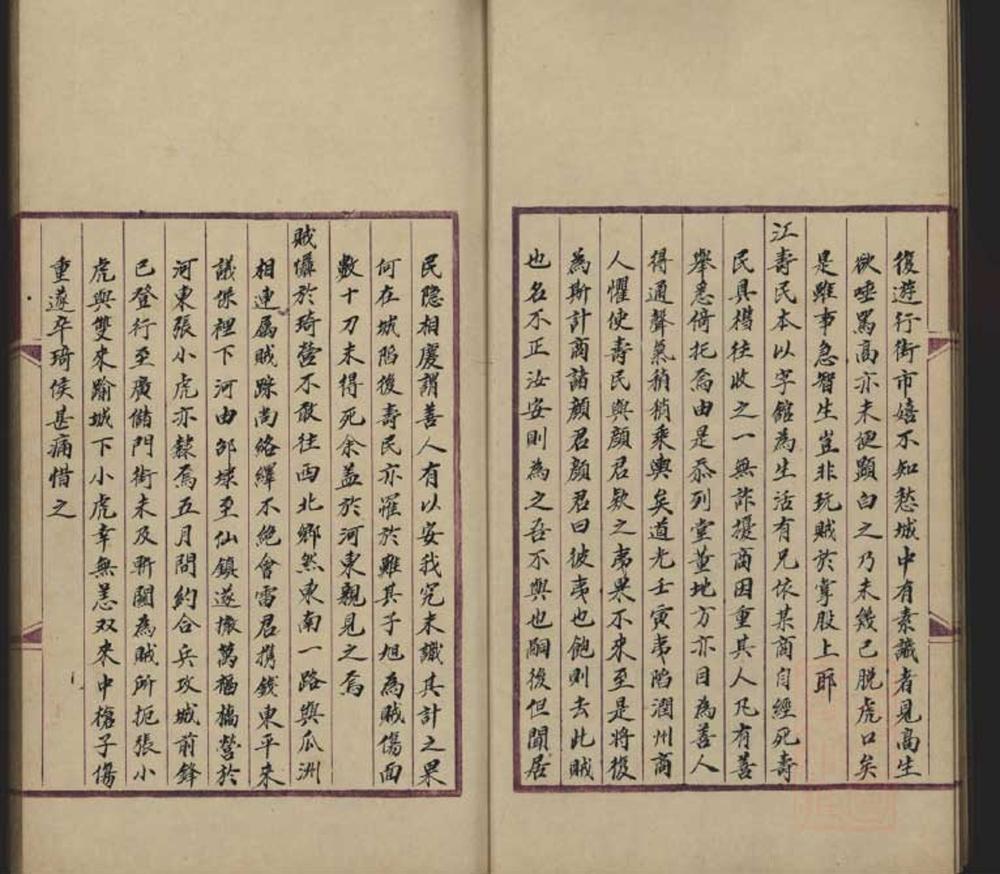 復遊行街市嬉不知愁城中有素識者見高生
欲唾罵高亦未便顯白之乃未幾已脫虎口矣
是雖事急智生豈非玩賊於掌股上耶
江壽民本以字館為生活有兄依某商自經死壽
民具楻往收之一無詐擾商因重其人凡有善
舉悉倚托焉由是忝列堂董地方亦目為善人
得通聲氣稍稍乘輿矣道光壬寅夷陷潤州商
人懼使壽民與顏君欵之夷果不來至是將復
為斯計商諸顏君顏君曰彼夷也飽則去此賊
也名不正汝安則為之吾不與也嗣後但聞居
民隐相慶謂善人有以安我究未識其計之果
何在城陷後壽民亦罹於難其子旭為賊傷面
數十刀未得死余盖於河東親見之焉
賊懾於琦營不敢往西北鄉然東南一路與瓜洲
相連属賊踪尚絡繹不絕會雷君携錢東平來
議保裡下河由邵埭至仙鎮遂擄萬福橋營於
河東張小虎亦隸焉五月間約合兵攻城前鋒
已登行至廣儲門街未及斬關為賊所扼張小
虎與雙來踰城下小虎幸無恙双來中槍子傷
重遂卒琦侯甚痛惜之